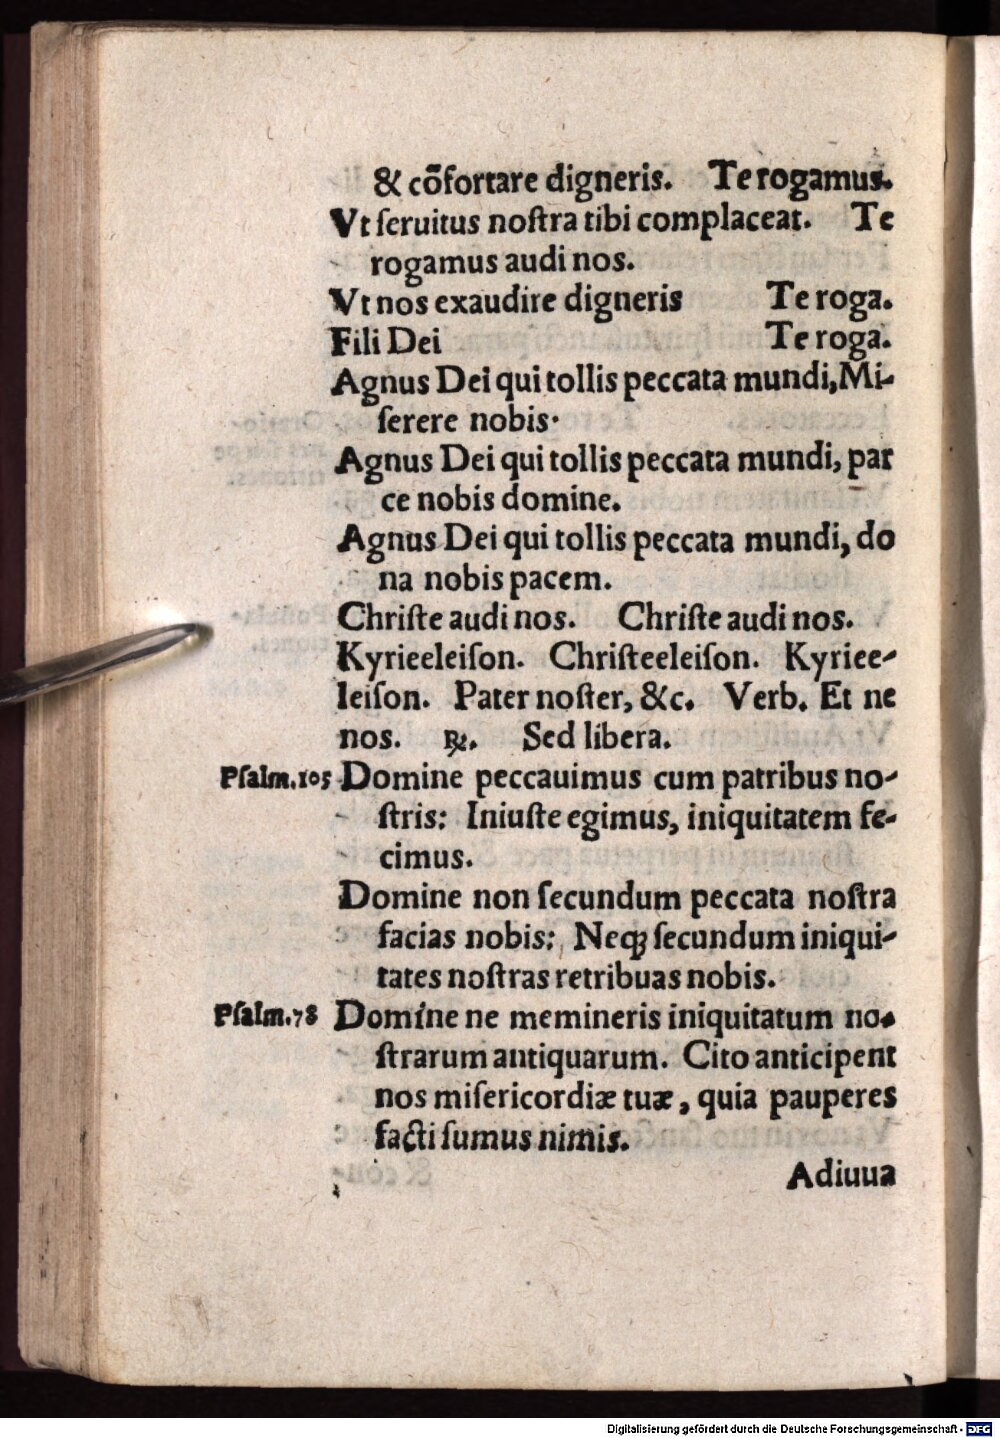 & cõfortare digneris. Te rogamus.
Vt ſeruitus noſtra tibi complaceat. Te
rogamus audi nos.
Vt nos exaudire digneris Te roga.
Fili Dei Te roga.
Agnus Dei qui tollis peccata mundi, Mi-
ſerere nobis·
Agnus Dei qui tollis peccata mundi, par
ce nobis domine.
Agnus Dei qui tollis peccata mundi, do
na nobis pacem.
Chriſte audi nos. Chriſte audi nos.
Kyrieeleiſon. Chriſteeleiſon. Kyriee-
leiſon. Pater noſter, &c. Verb. Et ne
nos. ℞. Sed libera.
Pſalm.105 Domine peccauimus cum patribus no-
ſtris: Iniuſte egimus, iniquitatem fe-
cimus.
Domine non ſecundum peccata noſtra
facias nobis: Neqꝫ ſecundum iniqui-
tates noſtras retribuas nobis.
Pſalm.78 Domine ne memineris iniquitatum no-
ſtrarum antiquarum. Cito anticipent
nos miſericordiæ tuæ, quia pauperes
facti ſumus nimis.
Adiuua
Digitalisierung gefördert durch die Deutsche Forschungsgemeinschaft - DFG